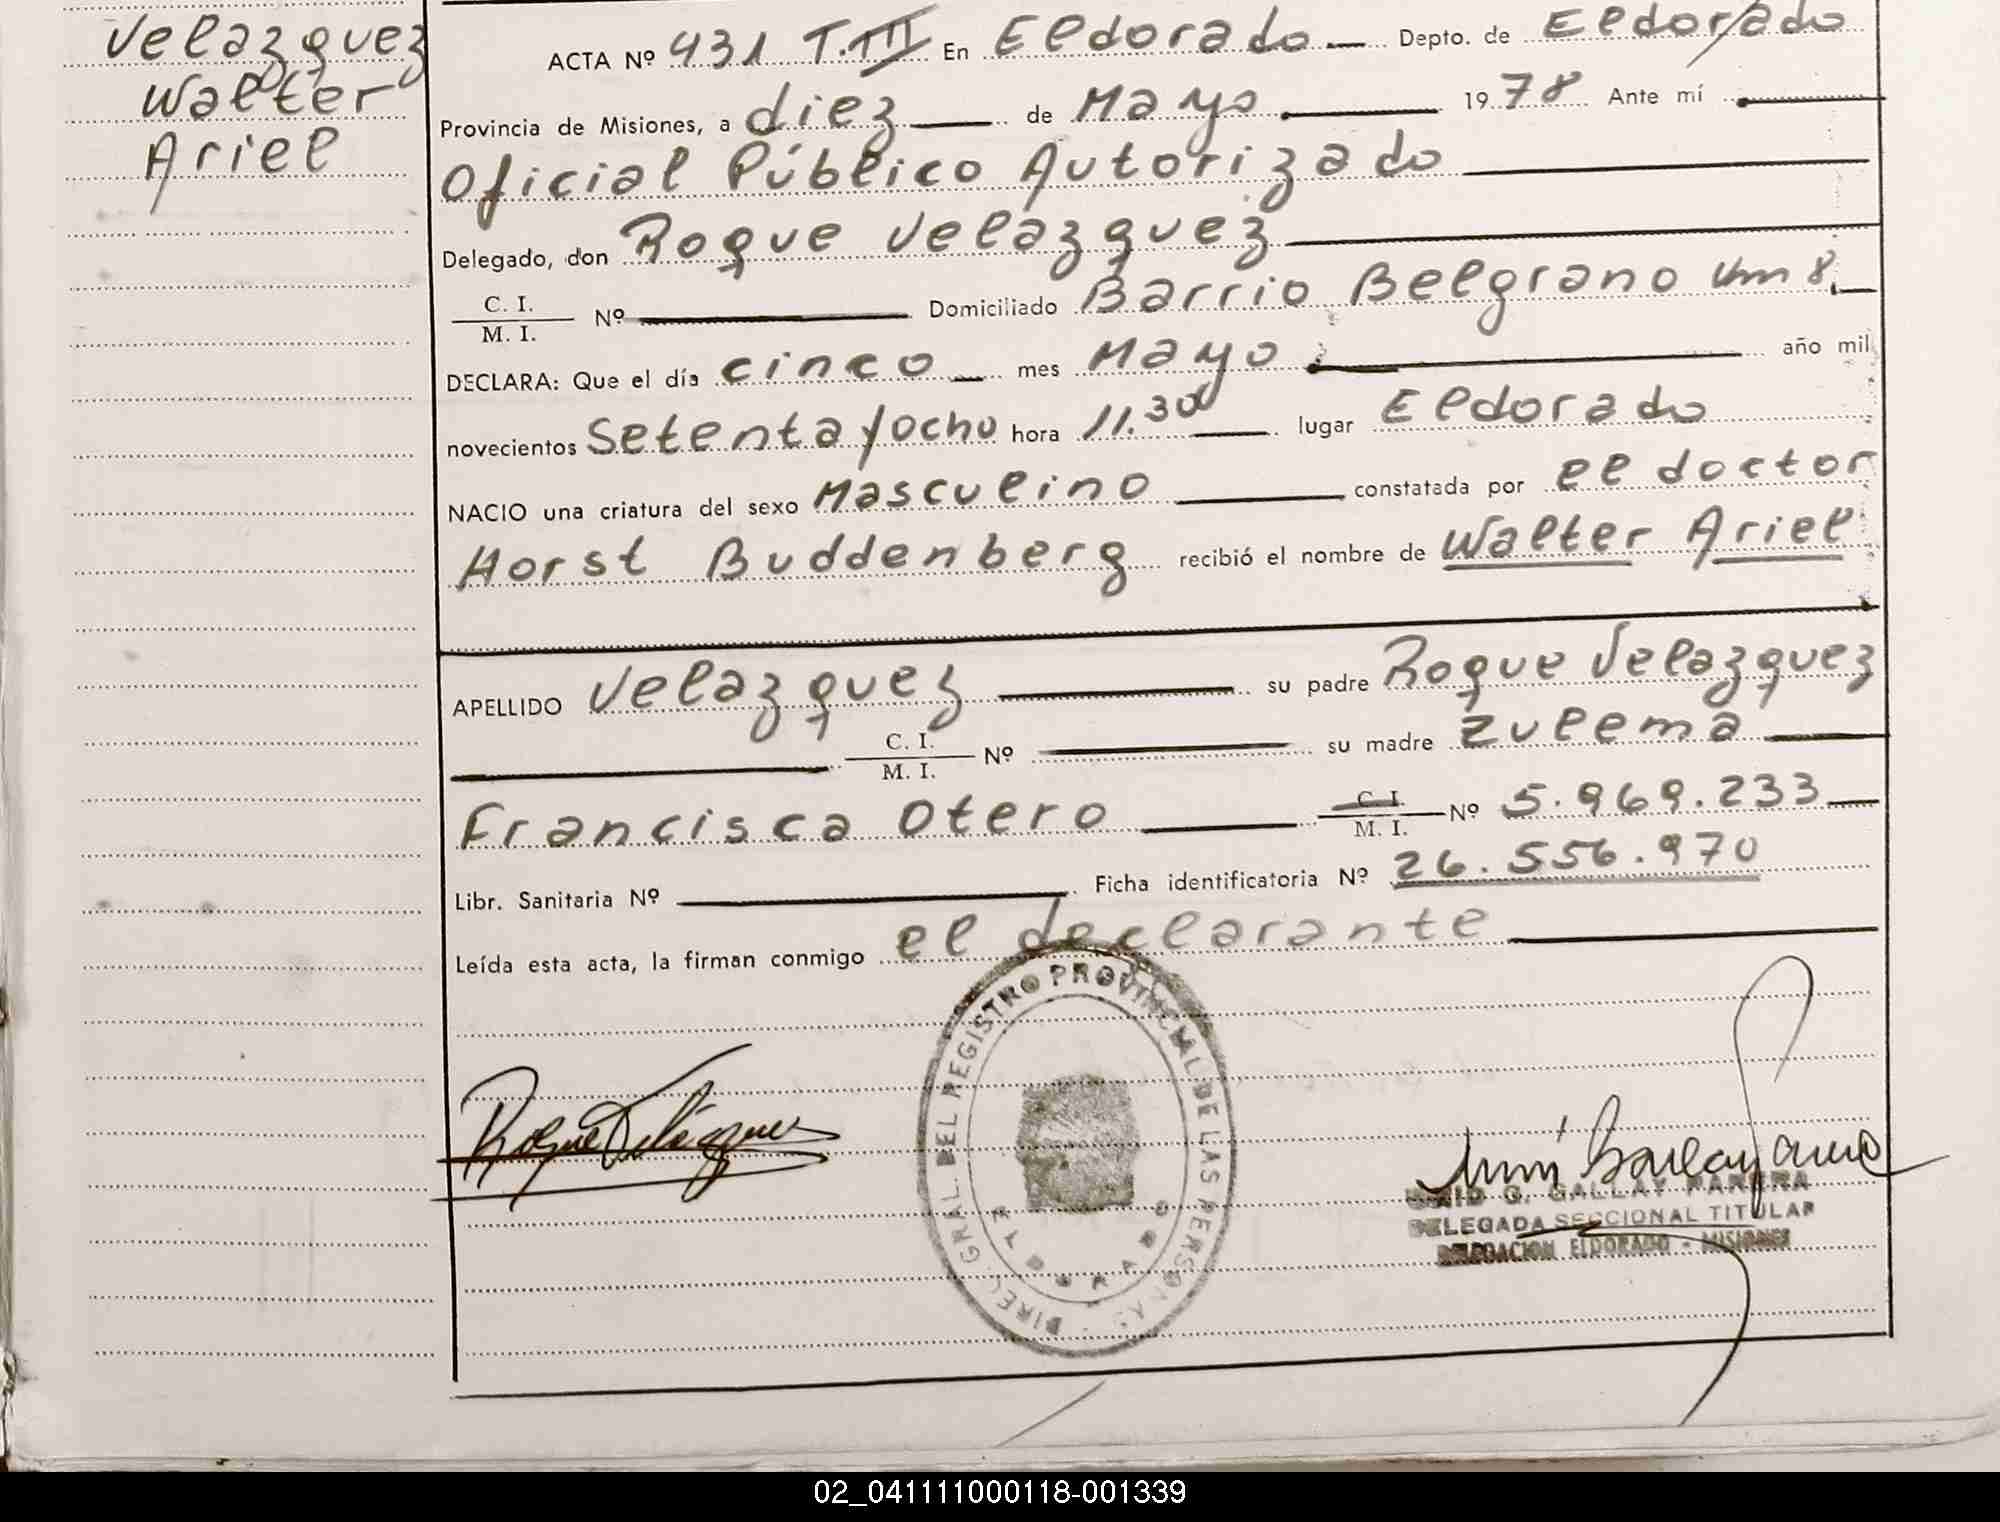 Velazquez
Walter
Ariel
ACTA Nº 431 T.III En Eldorado Depto. de Eldorado
Provincia de Misiones, a diez de Mayo 1978 Ante mí
Oficial Público Autorizado
Delegado, don Roque Velazquez
C. I.
M. I. Nº Domiciliado Barrio Belgrano Km 8.
DECLARA: Que el día cinco mes Mayo año mil
novecientos Setenta y ocho hora 11.30 lugar Eldorado
NACIO una criatura del sexo Masculino constatada por el doctor
Horst Buddenberg recibió el nombre de Walter Ariel
APELLIDO Velazquez su padre Roque Velazquez
C. I.
M. I. Nº su madre Zulema
Francisca Otero C. I.
M. I. Nº 5.969.233
Libr. Sanitaria Nº Ficha identificatoria Nº 26.556.970
Leída esta acta, la firman conmigo el declarante
DIREC. GRAL. DEL REGISTRO PROVINCIAL DE LAS PERSONAS
ELDORADO
Roque Velázquez
G. GALLAY PANERA
DELEGADA SECCIONAL TITULAR
DELEGACION ELDORADO - MISIONES
02_041111000118-001339